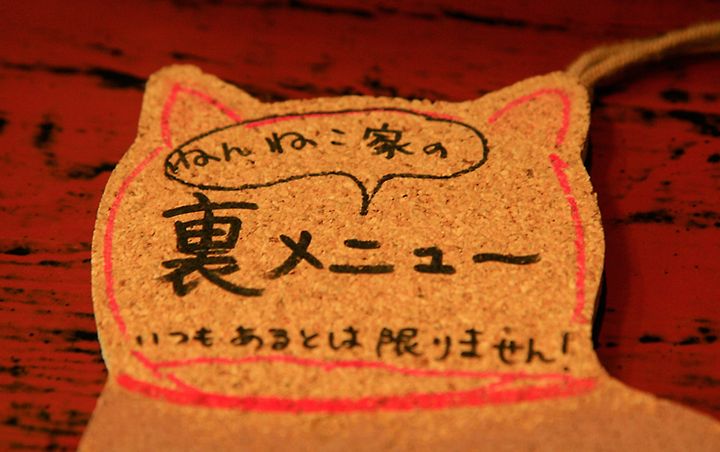 ねんねこ家の
裏メニュー
いつもあるとは限りません!